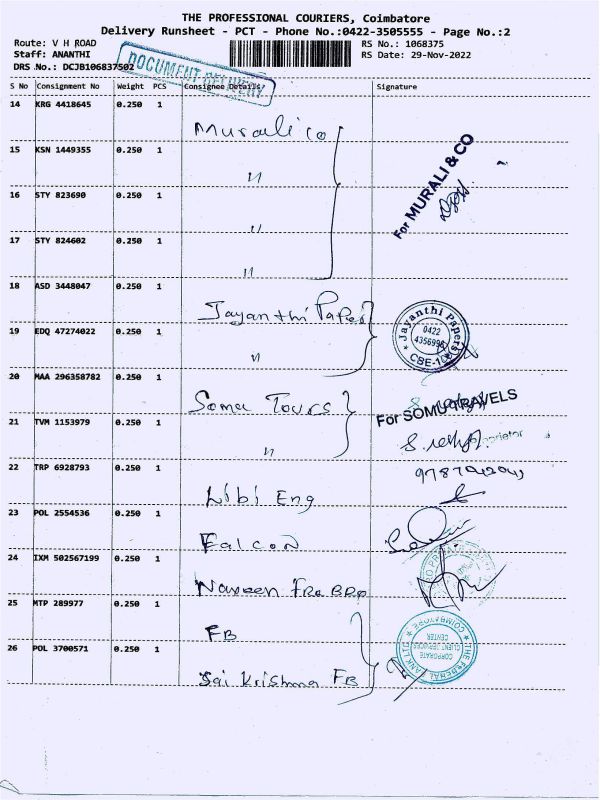 THE PROFESSIONAL COURIERS, Coimbatore
Delivery Runsheet - PCT - Phone No.:0422-3505555 - Page No.:2
Route: V H ROAD
RS No.: 1068375
Staff: ANANTHI
RS Date: 29-Nov-2022
DRS No.: DCJB106837502
DOCUMENT DELIVERY
S No Consignment No Weight PCS Consignee Details Signature
14 KRG 4418645 0.250 1
Murali co
15 KSN 1449355 0.250 1
"
For MURALI & CO
16 STY 823690 0.250 1
"
17 STY 824602 0.250 1
"
18 ASD 3448047 0.250 1
Jayanthi Papers
19 EDQ 47274022 0.250 1
"
Jayanthi Papers
0422
CBE-
20 MAA 296358782 0.250 1
Somu Tours
For SOMU TRAVELS
21 TVM 1153979 0.250 1
"
Proprietor
22 TRP 6928793 0.250 1
Libi Eng
23 POL 2554536 0.250 1
Falcon
24 IXM 502567199 0.250 1
Naveen
25 MTP 289977 0.250 1
FB
26 POL 3700571 0.250 1
Sai Krishna FB
THE FEDERAL BANK LTD
COIMBATORE
CORPORATE
CLIENT SERVICES
CENTER